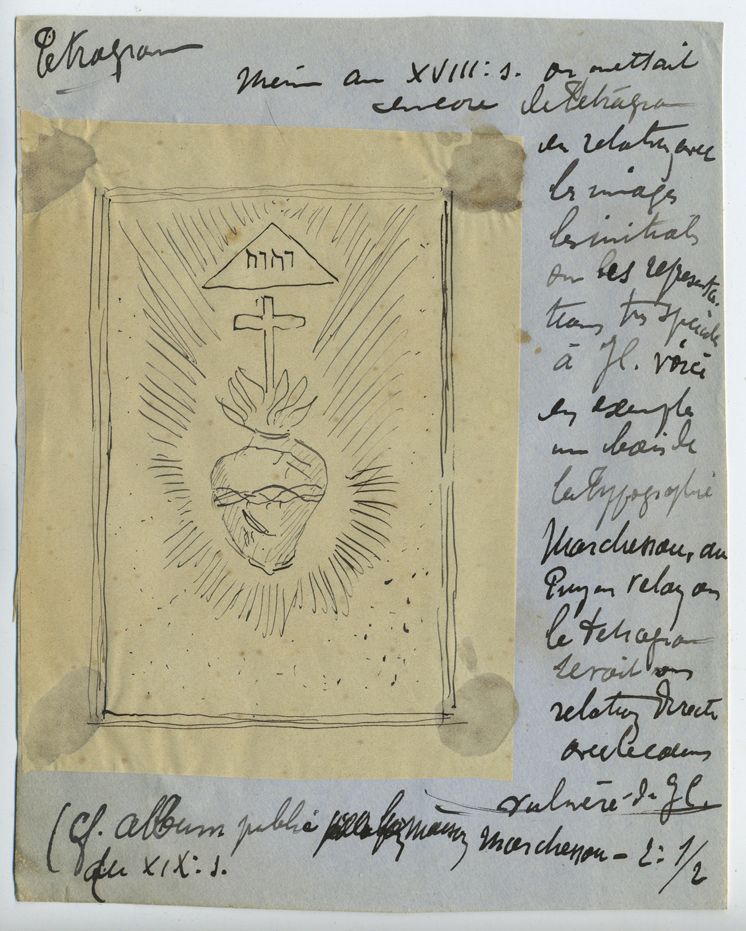 Tetragram
Même au XVIII: s. on mettait
encore le tétragram
en relation avec
les images
les initiales
ou les représenta-
tions très spéciales
à J C. voici
en exemple
un bois de
la typographie
Marchesson, du
Puy en Velay ou
le tetragram
serait en
relation directe
avec le coeur
vulnéré de J C.
יהוה
(cf. album publié par la maison Marchesson – 2: 1/2
du XIX: s.